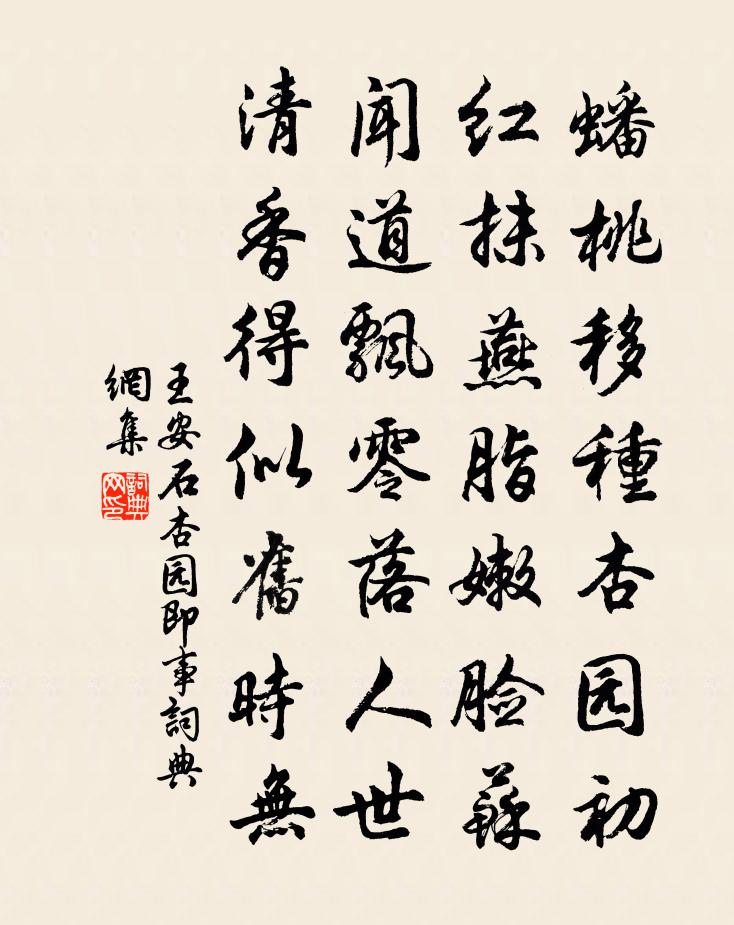 蟠桃移種杏园初
红抹燕脂嫩脸蘇
闻道飄零落人世
清香得似舊時無
王安石杏园即事詞典
網集
詞典网印